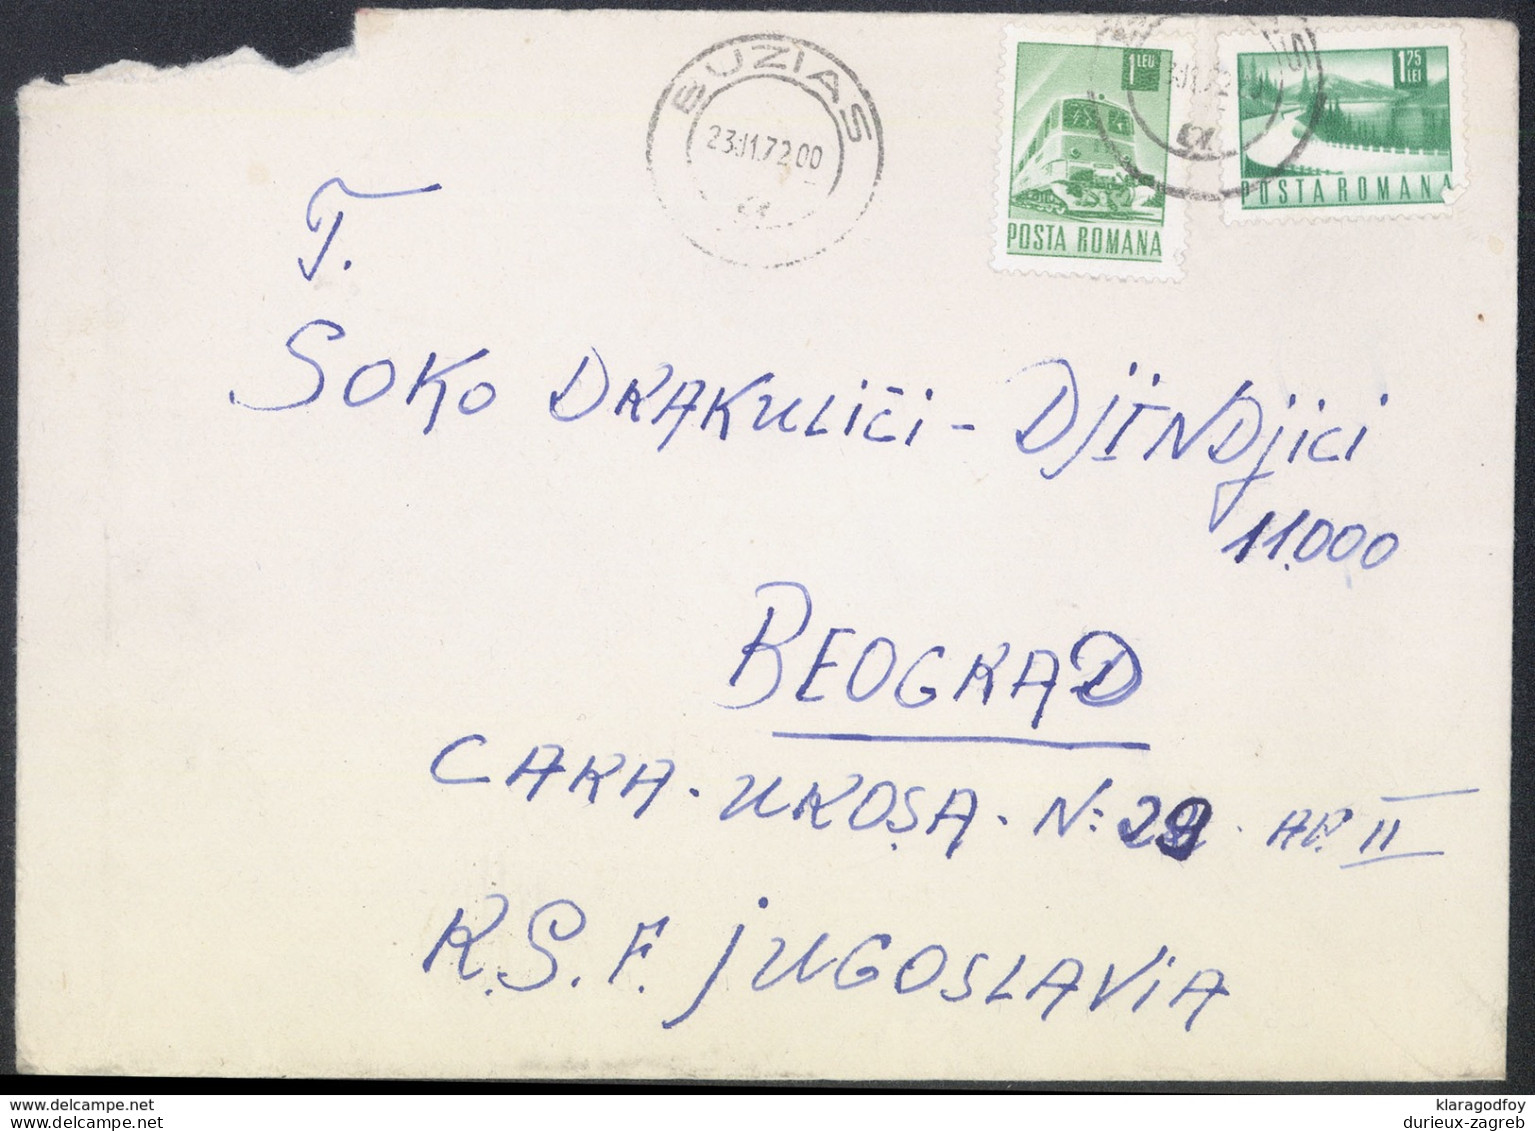 BUZIAS
23.11.72.00
1 LEU
POSTA ROMANA
1 25 LEI
POSTA ROMANA
T.
SOKO DRAKULIČI - DJINDJICI
11.000
BEOGRAD
CARA. UROSA. N: 29. AP. II
R.S.F. JUGOSLAVIA
klaragodfoy
durieux-zagreb